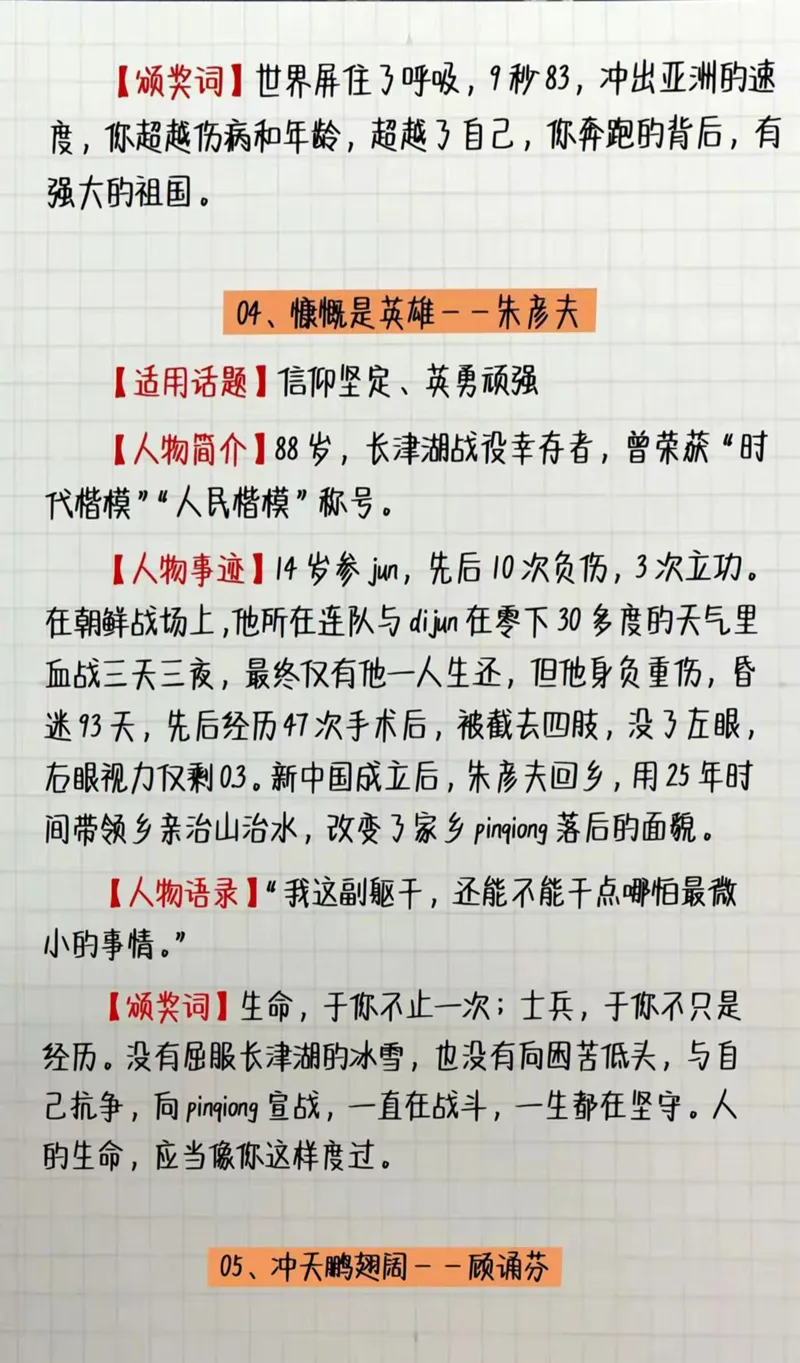 【颁奖词】世界屏住了呼吸，9秒83，冲出亚洲的速
度，你超越伤病和年龄，超越了自己，你奔跑的背后，有
强大的祖国。
04、慷慨是英雄－－朱彦夫
【适用话题】信仰坚定、英勇顽强
【人物简介】88岁，长津湖战役幸存者，曾荣获“时
代楷模”“人民楷模”称号。
【人物事迹】14岁参jun，先后10次负伤，3次立功。
在朝鲜战场上,他所在连队与dijun在零下30多度的天气里
血战三天三夜，最终仅有他一人生还，但他身负重伤，昏
迷93天，先后经历47次手术后，被截去四肢，没了左眼，
右眼视力仅剩0.3。新中国成立后，朱彦夫回乡，用25年时
间带领乡亲治山治水，改变了家乡pinqiong落后的面貌。
【人物语录】“我这副躯干，还能不能干点哪怕最微
小的事情。”
【颁奖词】生命，于你不止一次；士兵，于你不只是
经历。没有屈服长津湖的冰雪，也没有向困苦低头，与自
己抗争，向pinqiong宣战，一直在战斗，一生都在坚守。人
的生命，应当像你这样度过。
05、冲天鹏翅阔－－顾诵芬